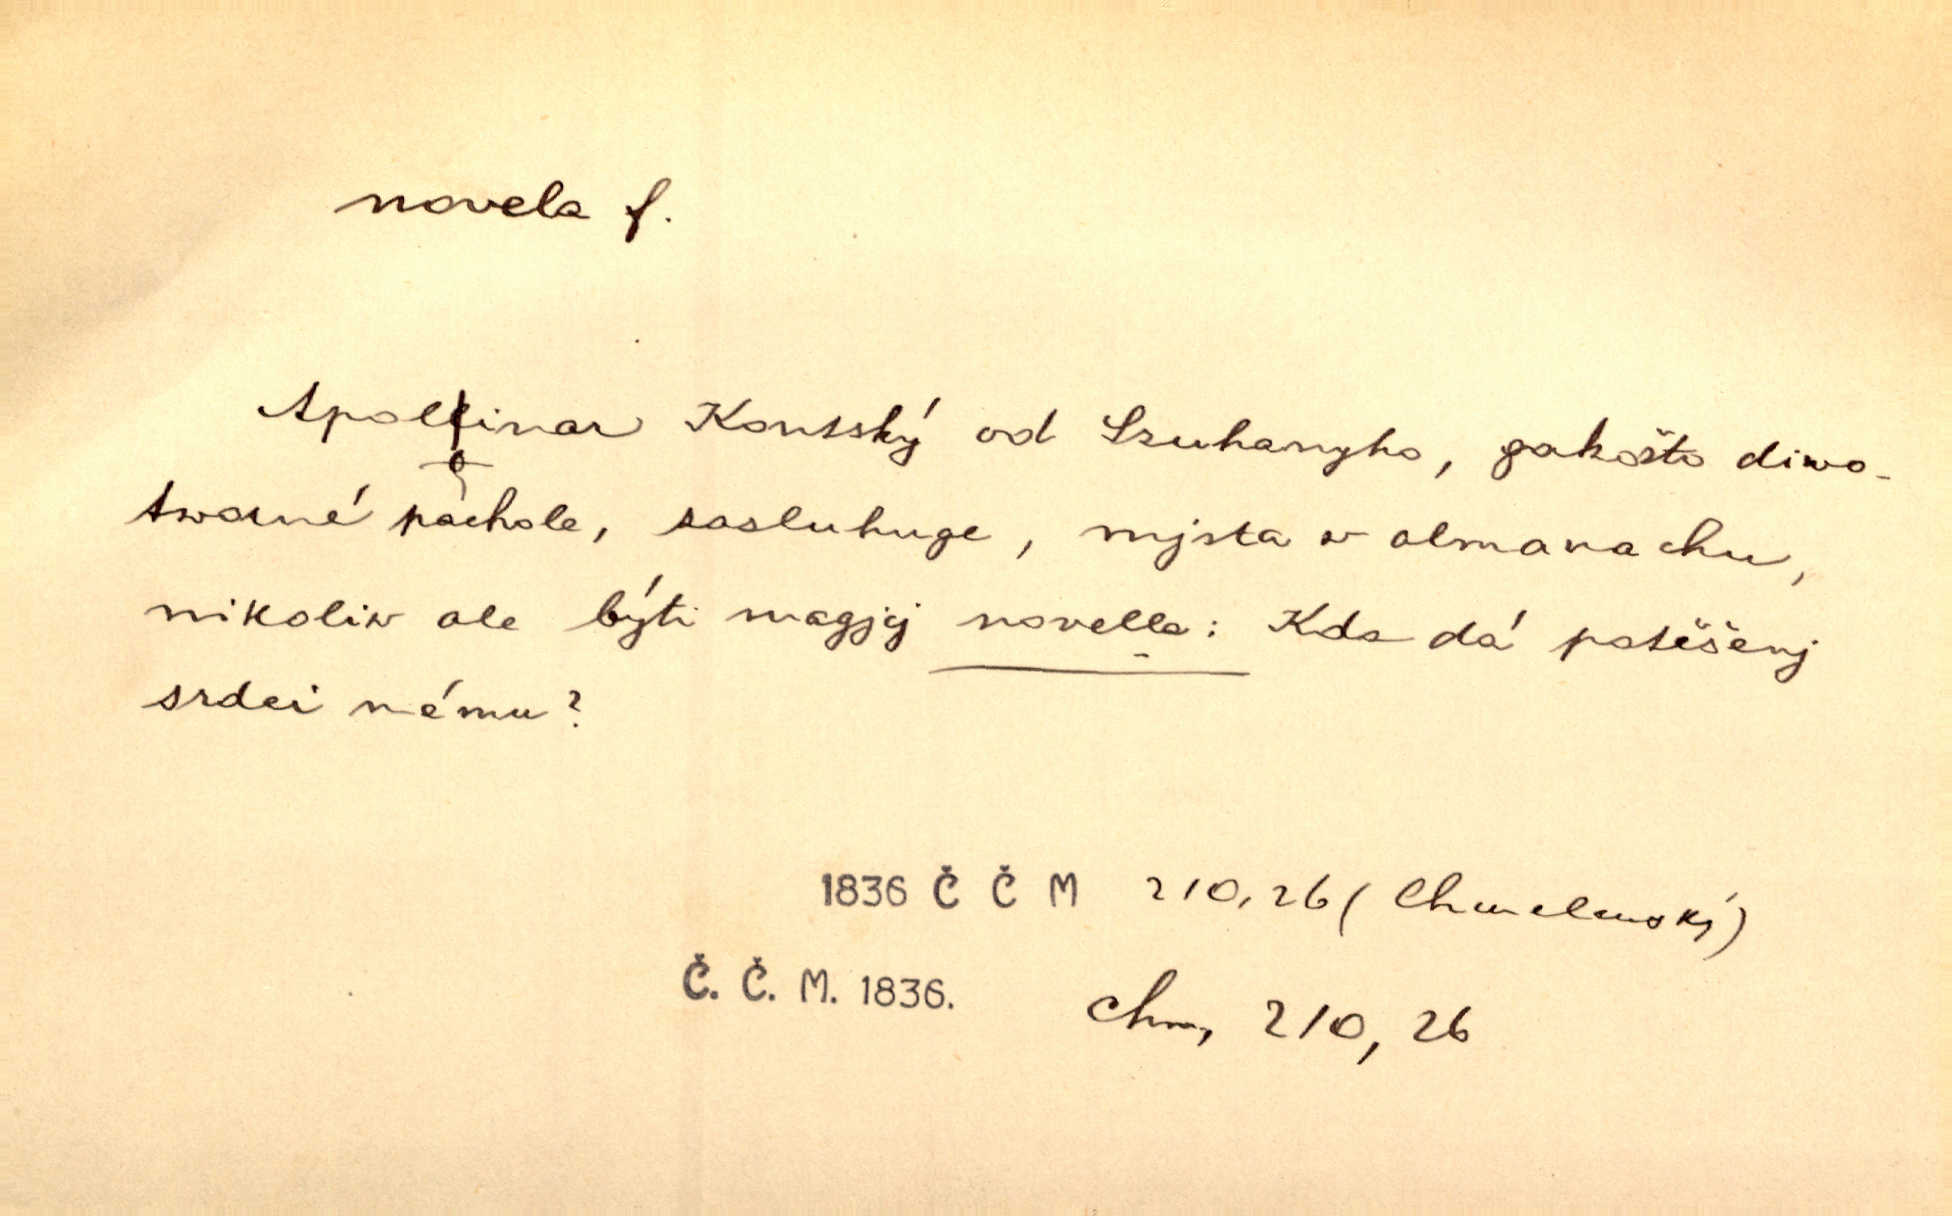 novela f.
Apolinar Kontský od Szuhanyho, gakožto diwo-
tworné pachole, zasluhuge, mjsta w almanachu,
nikoliw ale býti magjcj novella: Kdo dá potěšenj
srdci mému?
1836 Č Č M 210,26 (Chmelenský)
Č. Č. M. 1836. Chm, 210, 26